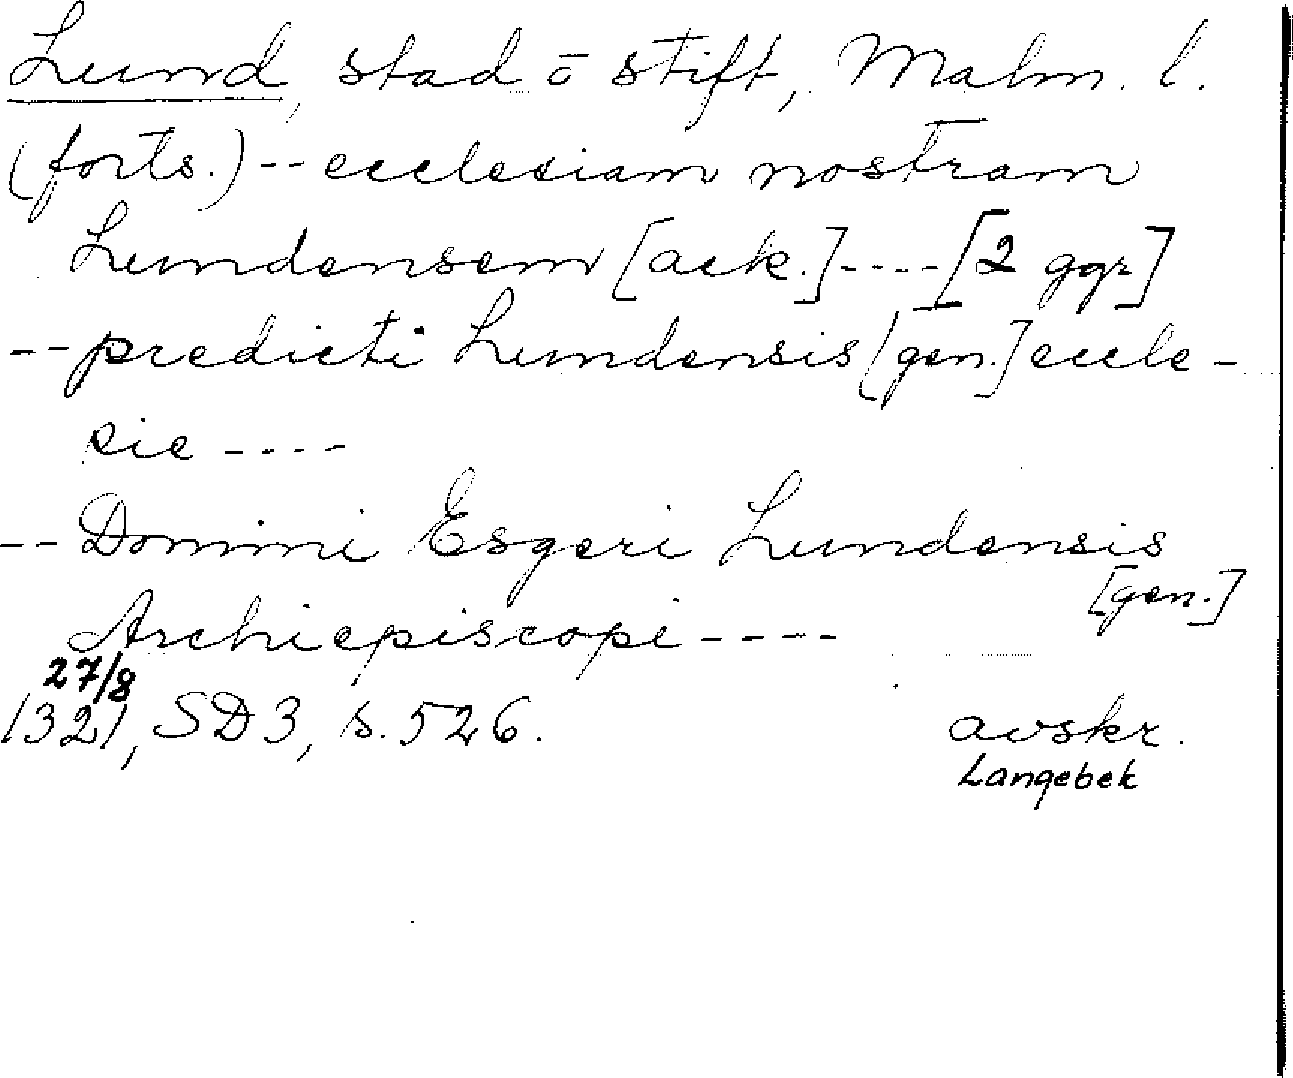 Lund, stad ō stift, Malm. l.
(forts.) -- ecclesiam nostram
Lundensem [ack.] ---- [2 ggr]
-- predicti Lundensis [gen.] eccle-
sie ----
-- Domini Esgeri Lundensis
[gen.]
Archiepiscopi ----
27/8
1321, SD3, s. 526. avskr.
Langebek